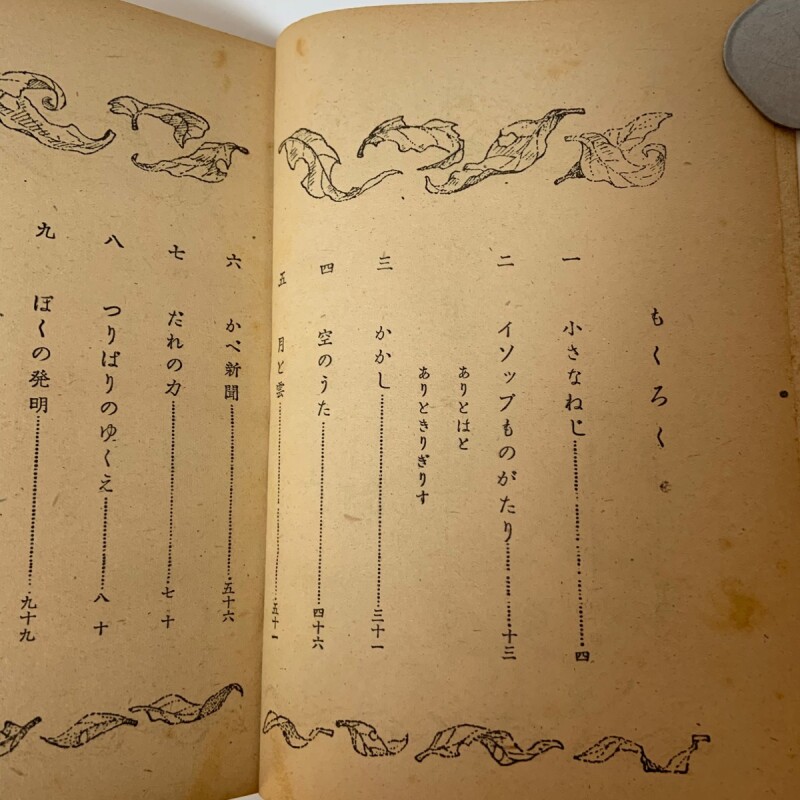 もくろく
一 小さなねじ…………四
二 イソップものがたり…………十三
ありとはと
ありときりぎりす
三 かかし…………三十一
四 空のうた…………四十六
五 月と雲…………五十一
六 かべ新聞…………五十六
七 だれの力…………七十
八 つりばりのゆくえ…………八十
九 ぼくの発明…………九十九